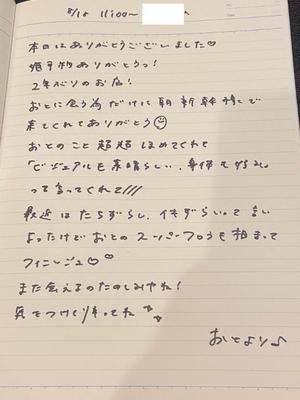 8/18 11:00〜
本日はありがとうございました♡
婚予約ありがとうっ!
2年ぶりのお店!
おとに会う為だけに朝新幹線で
来てくれてありがとう☺
おとのこと超超ほめてくれて
「ビジュアルも素晴らしい、身体もすばらしい」
って言ってくれて///
最近はたちずらし、イキずらいって言い
よったけどおとのスーパーフロウも相まって
フィニーッシュ♡♡
また会えるのたのしみやね!
気をつけて帰ってね
おとより♪